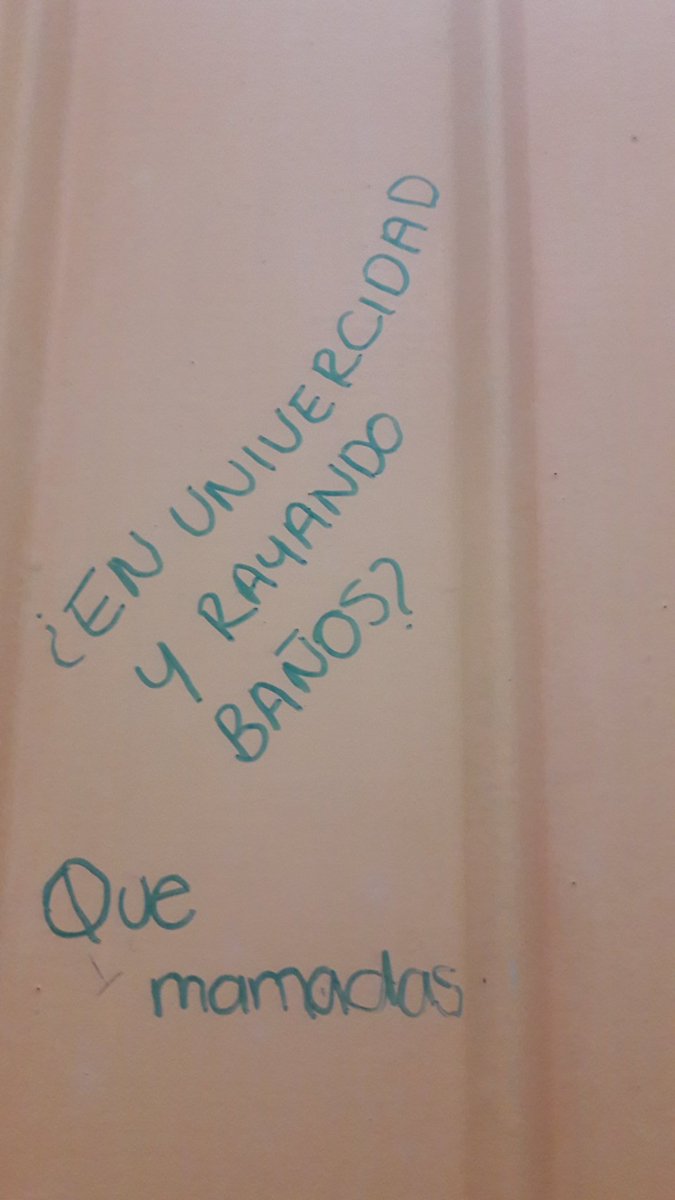 ¿EN UNIVERCIDAD
Y RAYANDO
BAÑOS?
Que
mamadas